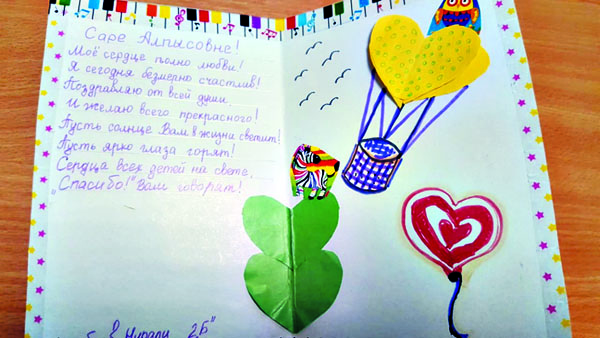 Саре Алпысовне!
Моё сердце полно любви!
Я сегодня безмерно счастлив!
Поздравляю от всей души,
И желаю всего прекрасного!
Пусть солнце Вам в жизни светит!
Пусть ярко глаза горят!
Сердца всех детей на свете,
"Спасибо!" Вам говорят!
"2Б"